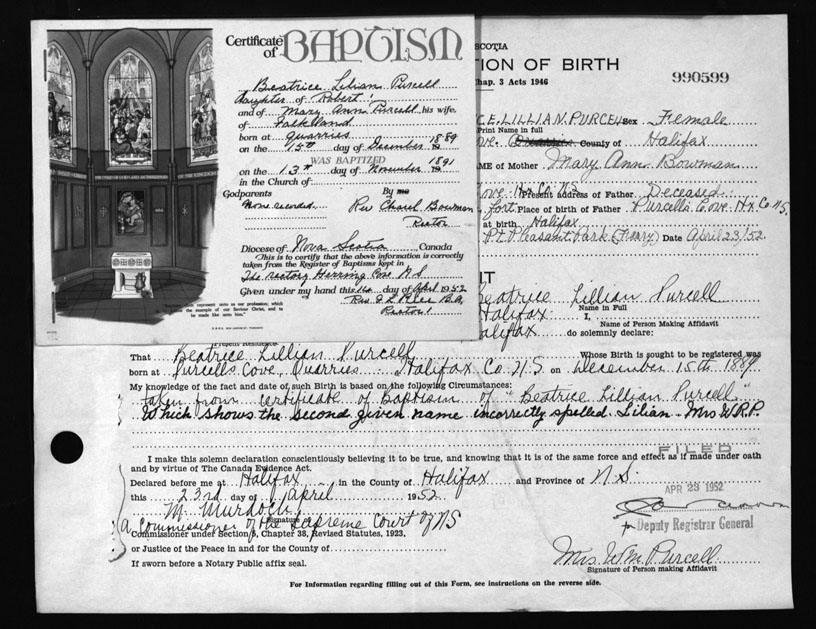 Certificate of BAPTISM
Beatrice Lilian Purcell
daughter of Robert
and of Mary Ann Purcell his wife,
of Falkland
born at quarries
on the 15th day of December 1889
WAS BAPTIZED
on the 13th day of November 1891
in the Church of
Godparents By me
None recorded. Rev Chasel Bowman
Rector
Diocese of Nova Scotia, Canada
This is to certify that the above information is correctly
taken from the Register of Baptisms kept in
The rectory Herring Cove N.S.
Given under my hand this day of April 1952
Rector
represent unto us our profession; which
the example of our Saviour Christ, and to
be made like him."
SCOTIA
ION OF BIRTH
Chap. 3 Acts 1946
990599
CE. LILLIAN. PURCELL Sex Female
Print Name in full
ove. County of Halifax
AME of Mother Mary Ann Bowman
Cove Hx Co N.S. Present address of Father Deceased
fort Place of birth of Father Purcells Cove Hx Co N.S.
at birth Halifax
Pt Pleasant Park (Ferry) Date April 23/52.
IT
Beatrice Lillian Purcell
Name in Full
Halifax I,
Name of Person Making Affidavit
Halifax do solemnly declare:
Present Residence
That Beatrice Lillian Purcell Whose Birth is sought to be registered was
born at Purcells Cove, Quarries Halifax Co. N.S. on December 15th 1889
My knowledge of the fact and date of such Birth is based on the following Circumstances:
taken from certificate of Baptism of "Beatrice Lillian Purcell"
Which shows the second given name incorrectly spelled Lilian - Mrs W.R.P.
FILED
I make this solemn declaration conscientiously believing it to be true, and knowing that it is of the same force and effect as if made under oath
and by virtue of The Canada Evidence Act.
APR 23 1952
Declared before me at Halifax in the County of Halifax and Province of N.S.
this 23rd day of April 1952
M. Murdoch
Signature of
for Deputy Registrar General
a Commissioner of the Supreme Court of NS
Commissioner under Section 5, Chapter 38, Revised Statutes, 1923,
or Justice of the Peace in and for the County of
Mrs. W M. Purcell
Signature of Person making Affidavit
If sworn before a Notary Public affix seal.
For Information regarding filling out of this Form, see instructions on the reverse side.